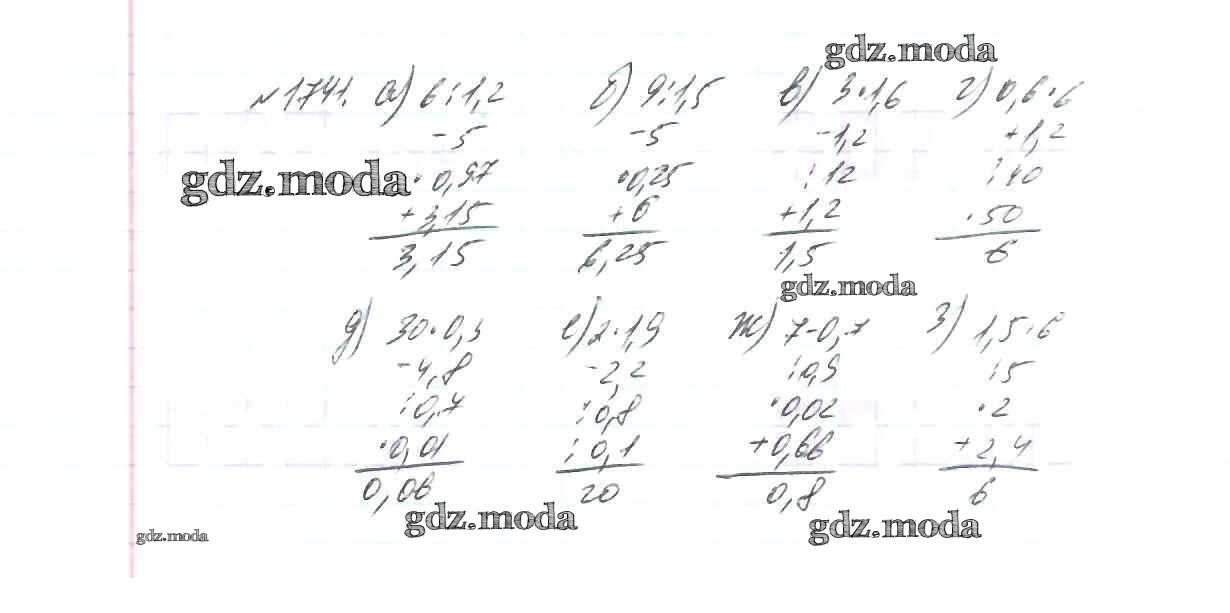 gdz.moda
№1741. а) 6:1,2 б) 9:1,5 в) 3·1,6 г) 0,6·6
-5 -5 -1,2 +1,2
·0,97 ·0,25 :12 :40
gdz.moda
+3,15 +6 +1,2 ·50
3,15 6,25 1,5 6
gdz.moda
д) 30·0,3 е) 2·1,9 ж) 7-0,7 з) 1,5·6
-4,8 -2,2 :0,9 :5
:0,7 :0,8 ·0,02 ·2
·0,01 :0,1 +0,66 +2,4
0,06 20 0,8 6
gdz.moda gdz.moda
gdz.moda